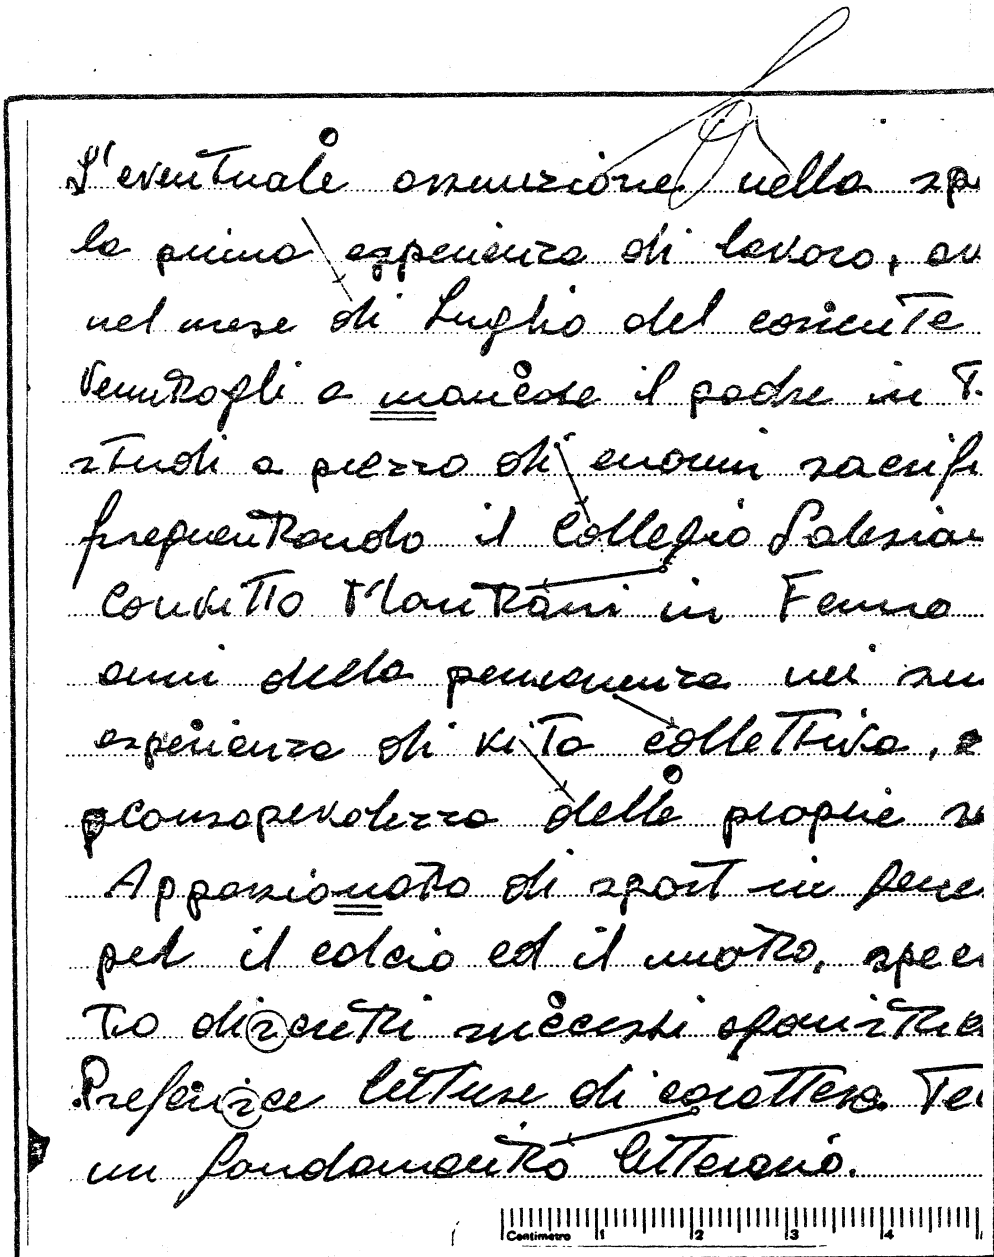 L'eventuale assunzione nella sp
la prima esperienza di lavoro, av
nel mese di Luglio del corrente
Venutogli a mancare il padre in T.
studi a prezzo di enormi sacrifi
frequentando il Collegio Salesian
Convitto Montani in Fermo
anni della permanenza nei su
esperienza di vita collettiva, e
consapevolezza delle proprie
Appassionato di sport in gene
per il calcio ed il nuoto, spec
to discreti successi agonistic
Preferisce letture di carattere Te
un fondamento letterario.
Centimetro 1 2 3 4